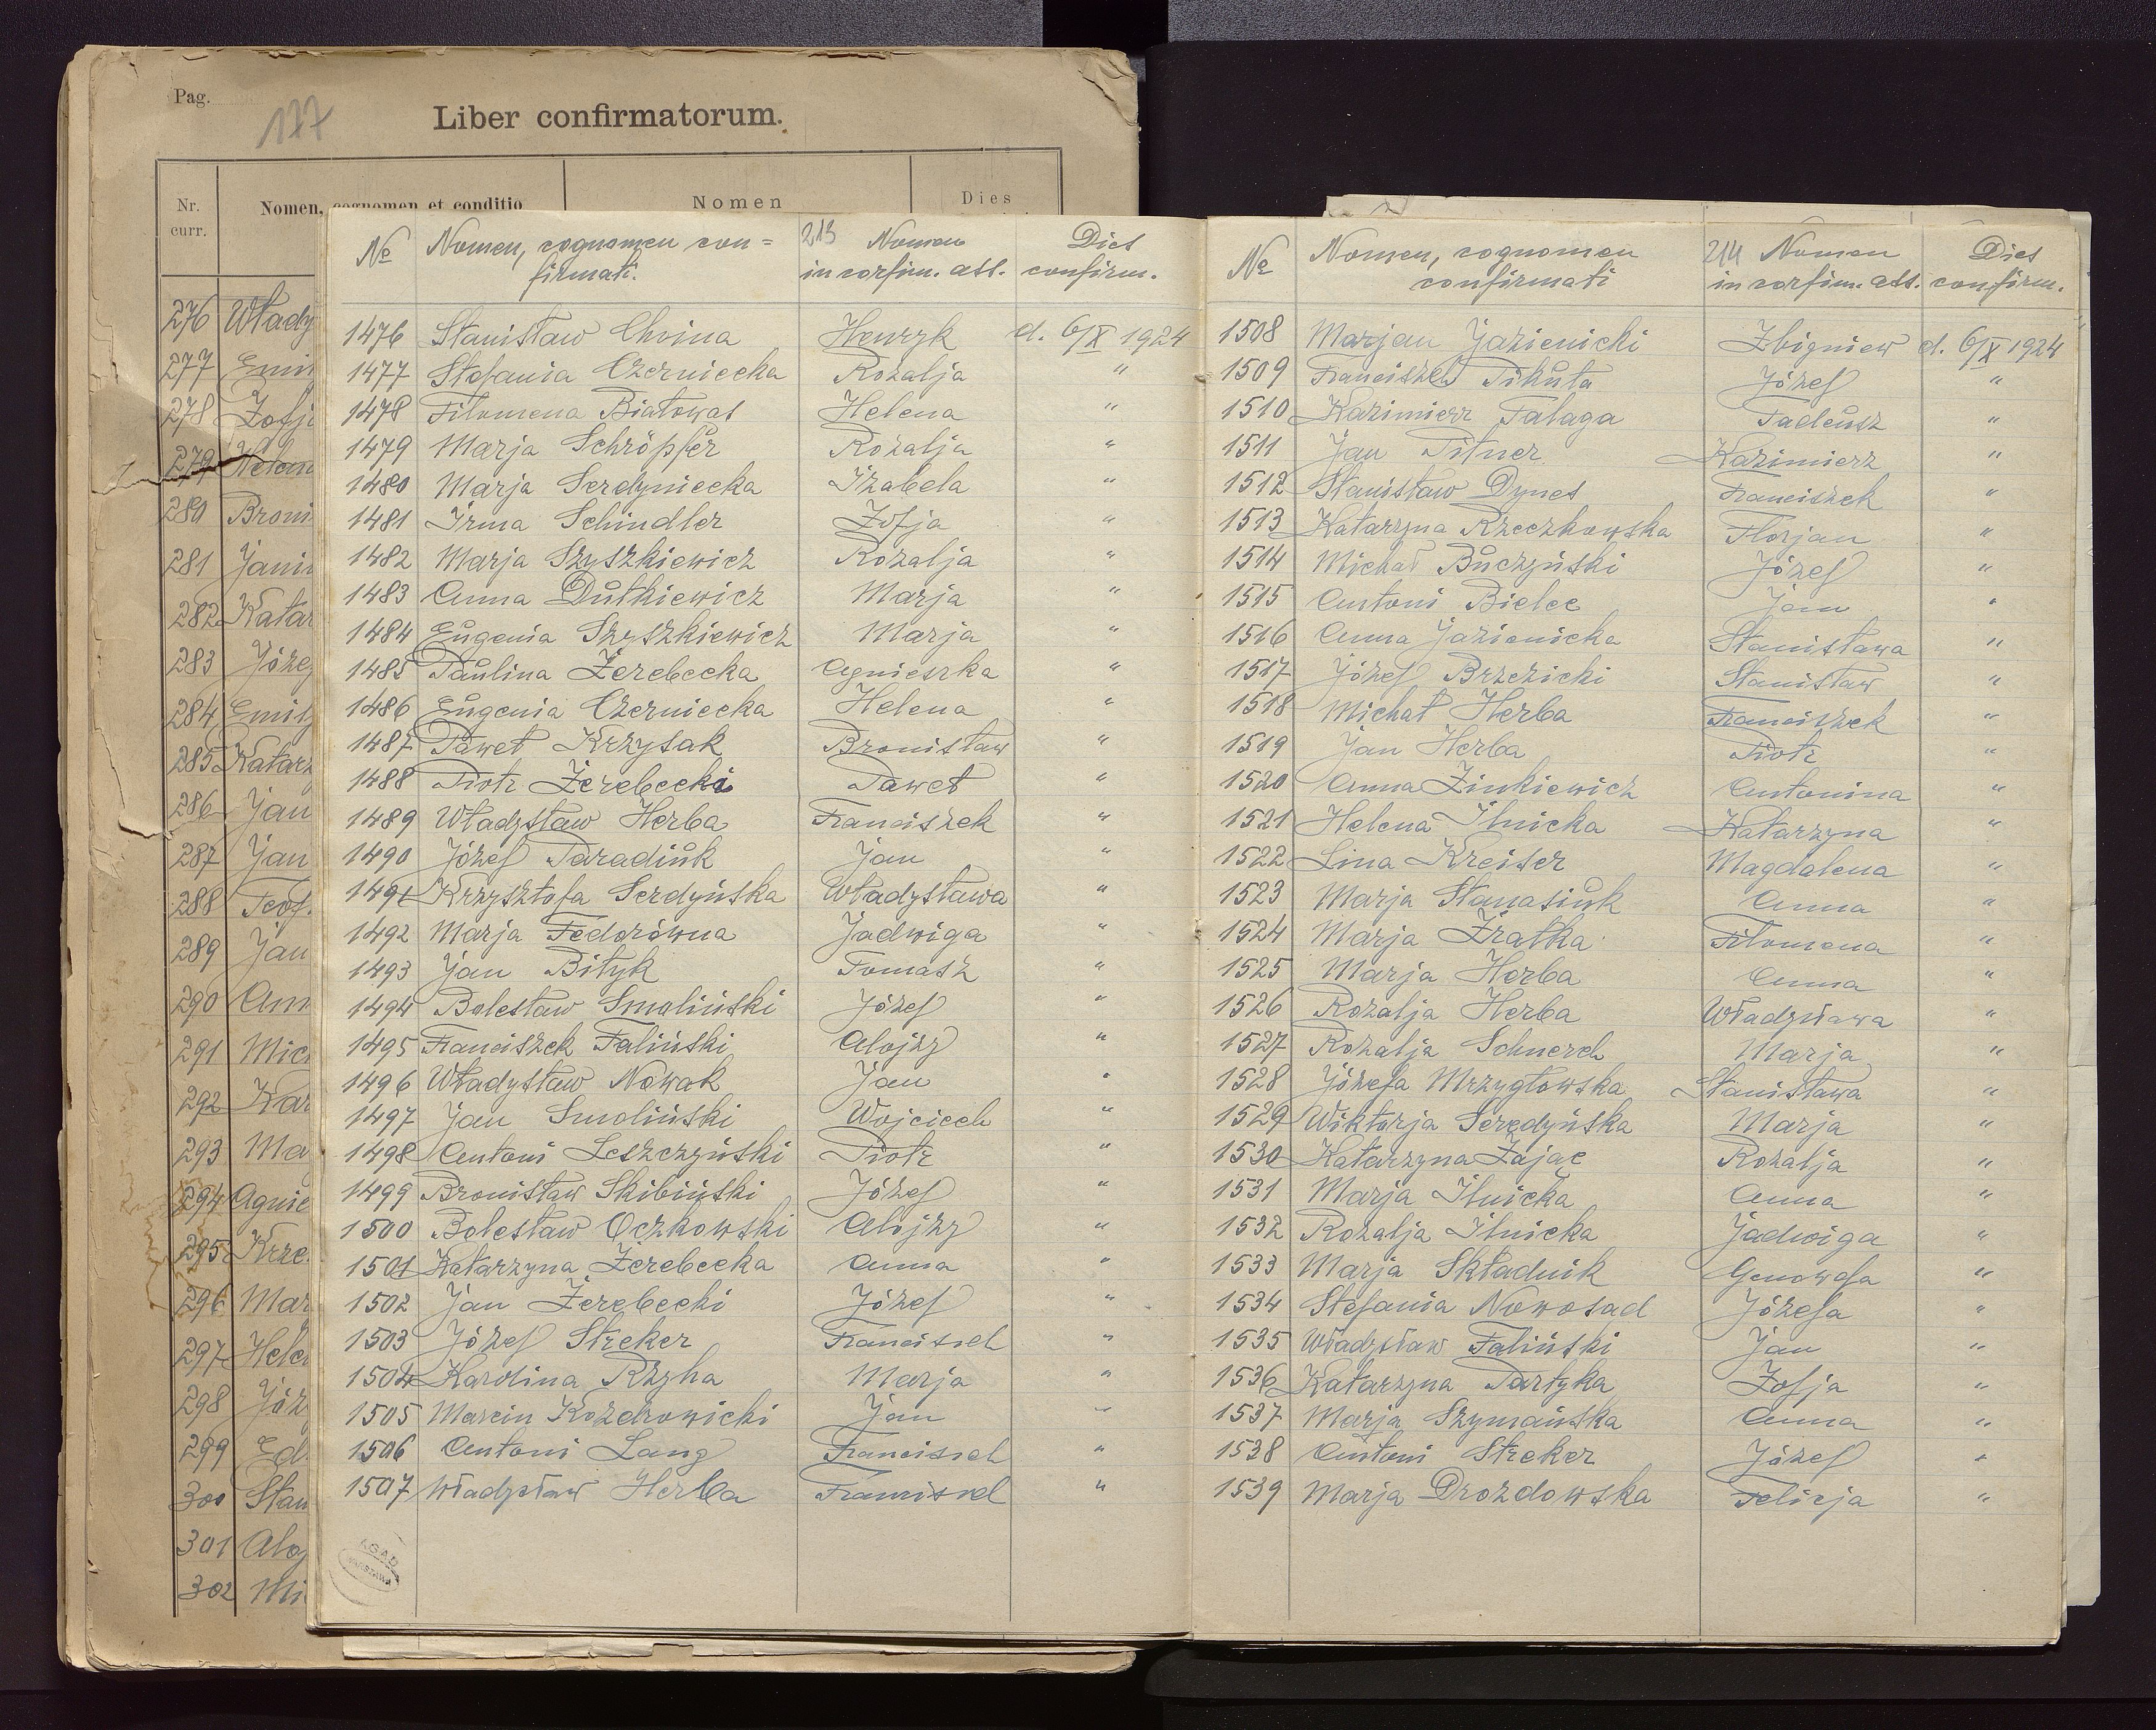 Pag.
177
Liber confirmatorum.
Nr. curr. Nomen, cognomen et conditio Nomen Dies
276 Włady
277 Emil
278 Zofj
279 Helen
280 Broni
281 Jani
282 Katar
283 Józe
284 Emil
285 Katarz
286 Jan
287 Jan
288 Teof.
289 Jan
290 Ann
291 Mic
292 Kar
293 Ma
294 Agnie
295 Krze
296 Mar
297 Hele
298 Józ
299 Ed
300 Stan
301 Aloj
302 Mi
213
№ Nomen, cognomen con= Nomen Dies
firmati. in confirm. ass. confirm.
1476 Stanisław Chvina Henryk d. 6/X 1924
1477 Stefania Czerniecka Rozalja "
1478 Filomena Białowąs Helena "
1479 Marja Schröpfer Rozalja "
1480 Marja Serdyniecka Izabela "
1481 Irma Schindler Zofja "
1482 Marja Szyszkiewicz Rozalja "
1483 Anna Dutkiewicz Marja "
1484 Eugenia Szyszkiewicz Marja "
1485 Paulina Żerebecka Agnieszka "
1486 Eugenia Czerniecka Helena "
1487 Paweł Krzysak Bronisław "
1488 Piotr Żerebecki Paweł "
1489 Władysław Herba Franciszek "
1490 Józef Paradiuk Jan "
1491 Krzysztofa Serdyńska Władysława "
1492 Marja Fedorówna Jadwiga "
1493 Jan Bityk Tomasz "
1494 Bolesław Smoliński Józef "
1495 Franciszek Faliński Alojzy "
1496 Władysław Nowak Jan "
1497 Jan Smoliński Wojciech "
1498 Antoni Leszczyński Piotr "
1499 Bronisław Skibiński Józef "
1500 Bolesław Oczkowski Alojzy "
1501 Katarzyna Żerebecka Anna "
1502 Jan Żerebecki Józef "
1503 Józef Streker Francisch "
1504 Karolina Rzyha Marja "
1505 Marcin Kozdrowicki Jan "
1506 Antoni Lang Francisch "
1507 Władysław Herba "
214
№ Nomen, cognomen Nomen Dies
confirmati in confirm. ass. confirm.
1508 Marjan Jazienicki Zbigniew d. 6/X 1924
1509 Franciszek Pikuła Józef "
1510 Kazimierz Talaga Tadeusz "
1511 Jan Titner Kazimierz "
1512 Stanisław Dynes Franciszek "
1513 Katarzyna Rzeczkowska Florjan "
1514 Michał Buczyński Józef "
1515 Antoni Bielec Jan "
1516 Anna Jazienicka Stanisława "
1517 Józef Brzezicki Stanisław "
1518 Michał Herba Franciszek "
1519 Jan Herba Piotr "
1520 Anna Zinkiewicz Antonina "
1521 Helena Ilnicka Katarzyna "
1522 Lina Kreiser Magdalena "
1523 Marja Stanasiuk Anna "
1524 Marja Zratka Filomena "
1525 Marja Herba Anna "
1526 Rozalja Herba Władysława "
1527 Rozalja Schnerch Marja "
1528 Józefa Mrzygłowska Stanisława "
1529 Wiktorja Seredyńska Marja "
1530 Katarzyna Zając Rozalja "
1531 Marja Ilnicka Anna "
1532 Rozalja Ilnicka Jadwiga "
1533 Marja Składnik Genowefa "
1534 Stefania Nowosad Józefa "
1535 Władysław Faliński Jan "
1536 Katarzyna Partyka Zofja "
1537 Marja Szymańska Anna "
1538 Antoni Streker Józef "
1539 Marja Drozdowska Felicja "